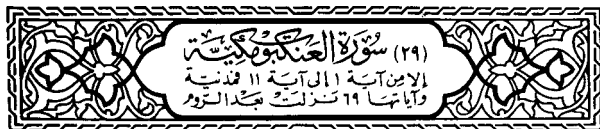 (٢٩) سُورَةُ العَنكبُومكيَّة
إلا مِن آية ١ إلى آية ١١ فمدنية
وآياتها ٦٩ نزلت بعد الروم